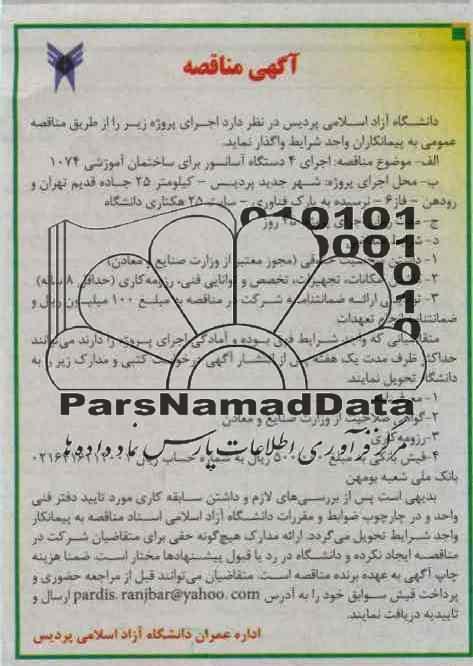 آگهی مناقصه
دانشگاه آزاد اسلامی پردیس در نظر دارد اجرای پروژه زیر را از طریق مناقصه
عمومی به پیمانکاران واجد شرایط واگذار نماید.
الف- موضوع مناقصه: اجرای ۴ دستگاه آسانسور برای ساختمان آموزشی ۱۰۷۴
ب- محل اجرای پروژه: شهر جدید پردیس - کیلومتر ۲۵ جاده قدیم تهران و
رودهن - فاز۶ - نرسیده به پارک فناوری - سایت ۲۵ هکتاری دانشگاه
ج- روز
010101
0001
10
1
0
د-
۱- حقوقی (مجوز معتبر از وزارت صنایع و معادن)
۲- امکانات، تجهیزات، تخصص و توانایی فنی، رزومه‌کاری (حداقل ۸ ساله)
۳- ارائه ضمانتنامه شرکت در مناقصه به مبلغ ۱۰۰ میلیون ریال و
ضمانتنامه انجام تعهدات
متقاضیانی که واجد شرایط فوق بوده و آمادگی اجرای پروژه را دارند می‌توانند
حداکثر ظرف مدت یک هفته پس از انتشار آگهی درخواست کتبی و مدارک زیر را به
دانشگاه تحویل نمایند.
ParsNamadData
۱-
۲-گواهی صلاحیت از وزارت صنایع و معادن
۳-رزومه‌کاری
مرکز فرآوری اطلاعات پارس نماد داده ها
۴-فیش بانکی به مبلغ ریال به شماره حساب
بانک ملی شعبه بومهن
بدیهی است پس از بررسی‌های لازم و داشتن سابقه کاری مورد تایید دفتر فنی
واحد و در چارچوب ضوابط و مقررات دانشگاه آزاد اسلامی اسناد مناقصه به پیمانکار
واجد شرایط تحویل می‌گردد. ارائه مدارک هیچ‌گونه حقی برای متقاضیان شرکت در
مناقصه ایجاد نکرده و دانشگاه در رد یا قبول پیشنهادها مختار است. ضمنا هزینه
چاپ آگهی به عهده برنده مناقصه است. متقاضیان می‌توانند قبل از مراجعه حضوری و
پرداخت فیش سوابق خود را به آدرس pardis.ranjbar@yahoo.com ارسال و
تاییدیه دریافت نمایند.
اداره عمران دانشگاه آزاد اسلامی پردیس